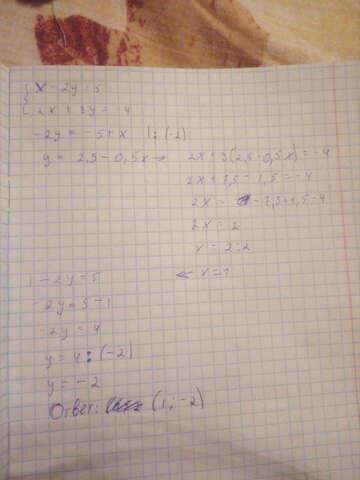 { x - 2y = 5
{ 2x + 3y = -4
-2y = -5 + x | : (-2)
y = 2,5 - 0,5x →
2x + 3(2,5 - 0,5x) = -4
2x + 7,5 - 1,5 = -4
2x = -7,5 + 1,5 - 4
2x = 2
x = 2:2
← x = 1
1 - 2y = 5
-2y = 5 - 1
-2y = 4
y = 4 : (-2)
y = -2
Ответ: (1; -2)